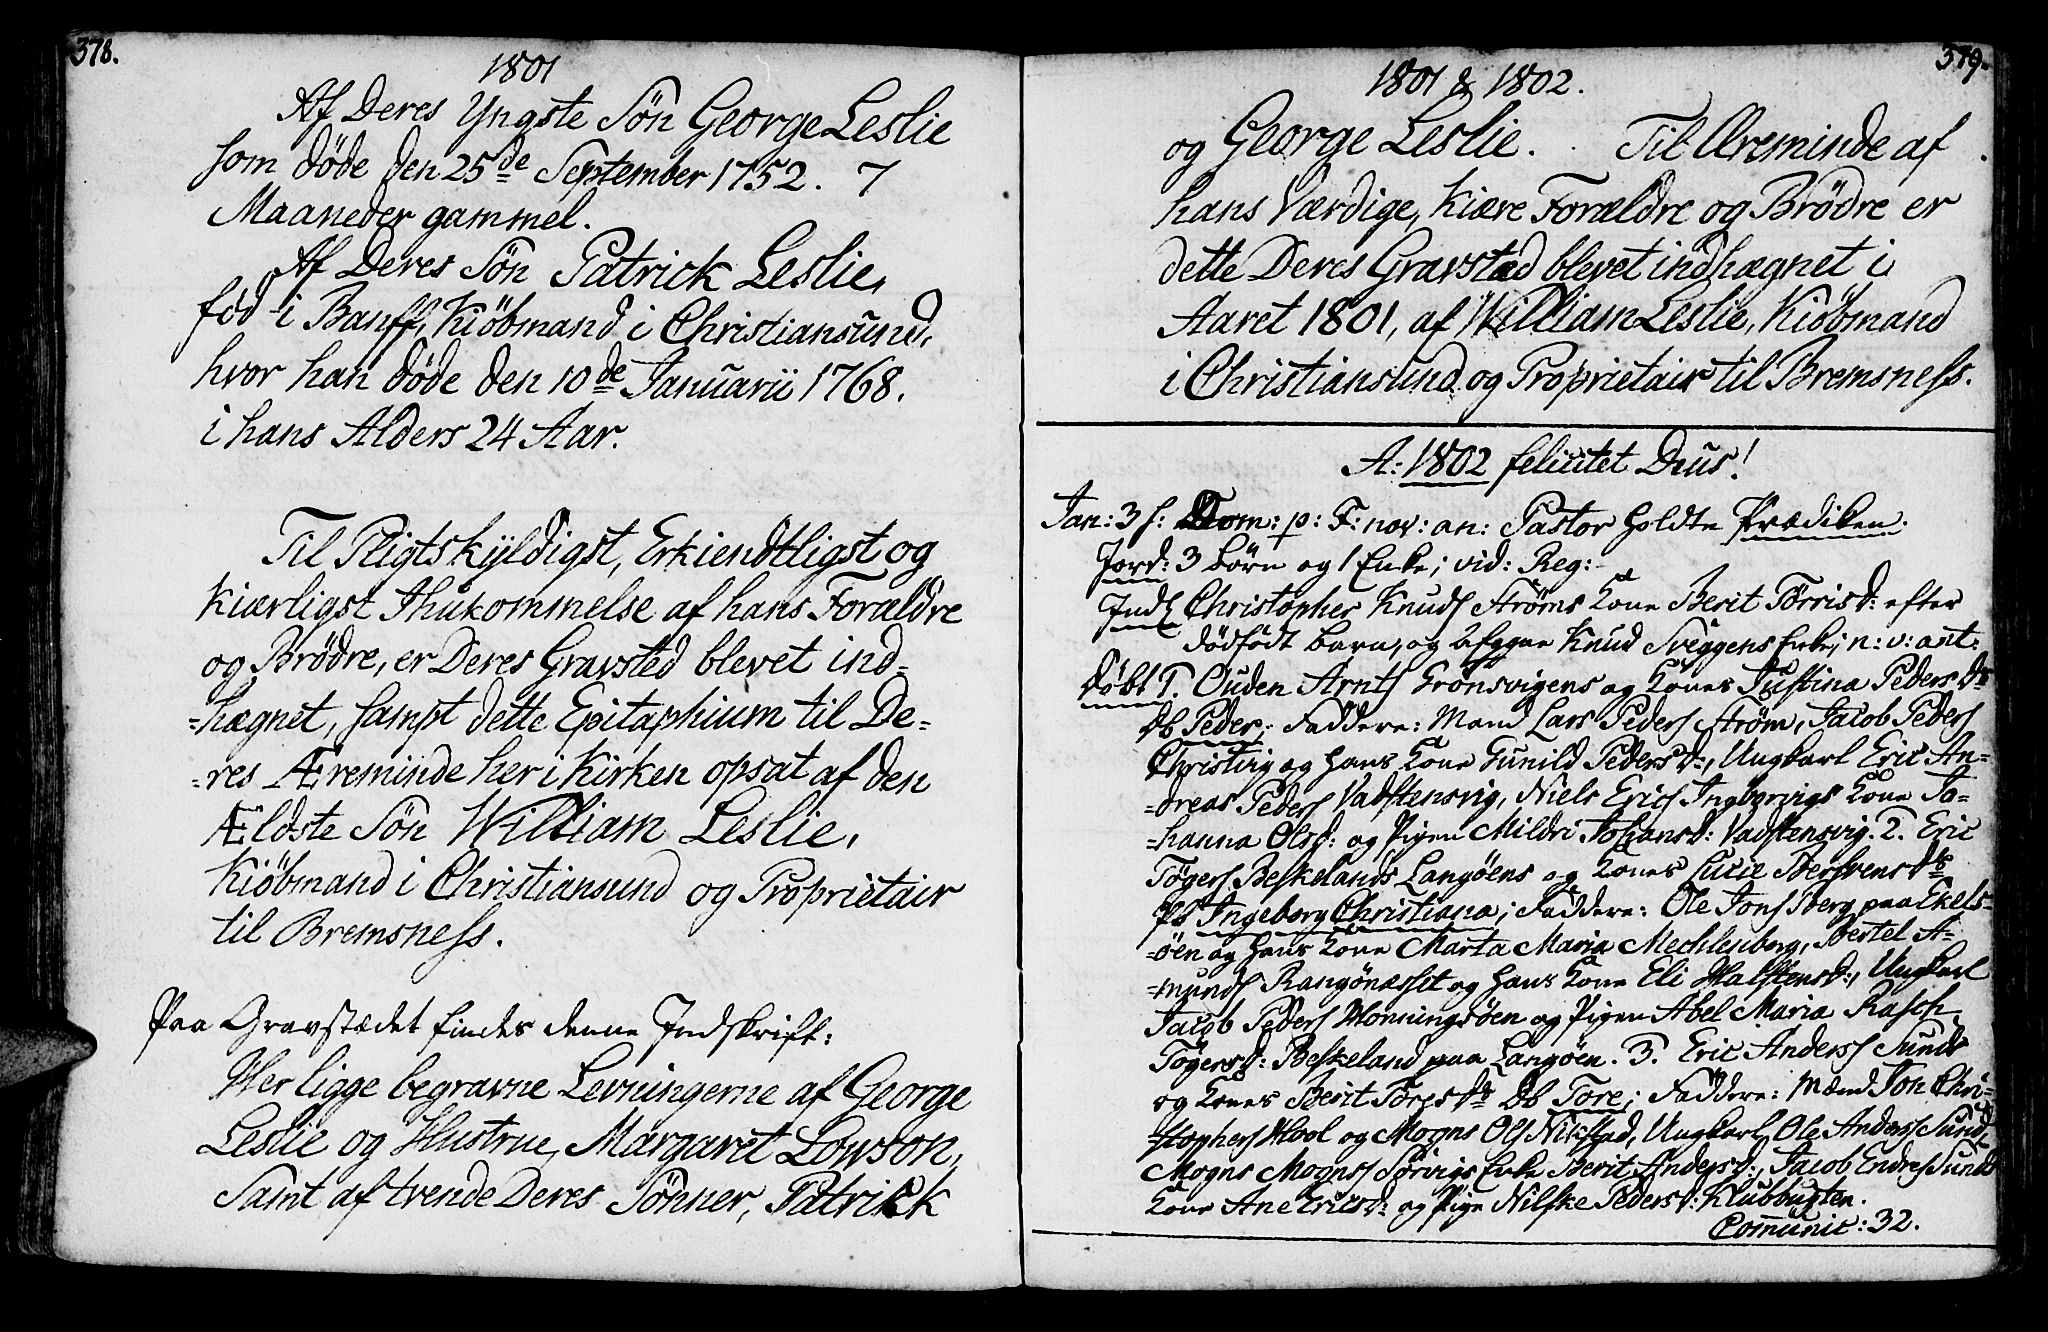 378.
1801
Af Deres Yngste Søn George Leslie
som døde den 25de September 1752. 7
Maaneder gammel.
Af Deres Søn Patrick Leslie,
fød i Banff, Kiøbmand i Christiansund,
hvor han døde den 10de Januarii 1768.
i hans Alders 24 Aar.
Til Pligtskyldigst, Erkiendtligst og
kiærligst Ihukommelse af hans Forældre
og Brødre, er Deres Gravsted blevet ind-
-hægnet, samt dette Epitaphium til De-
-res Æreminde her i Kirken opsat af den
Ældste Søn William Leslie,
Kiøbmand i Christiansund og Proprietair
til Bremsness.
Paa Gravstædet findes denne Indskrift:
Her ligge begravne Levningerne af George
Leslie og Hustrue, Margaret Lowson,
Samt af trende Deres Sønner, Patrick
379.
1801 & 1802.
og George Leslie. Til Æreminde af
hans Værdige, kiære Forældre og Brødre er
dette Deres Gravstæd blevet indhægnet i
Aaret 1801, af William Leslie, Kiøbmand
i Christiansund og Proprietair til Bremsness.
A: 1802 felicitet Deus!
Jan: 3 f: Dom: p: F: nov: an: Pastor holdte Prædiken.
Jord: 3 børn og 1 Enke; vid: Reg:
Indl Christopher Knuds Strøms Kone Berit Tørrisd: efter
dødfödt barn, og Knud Sveggens Enke; n: v: ant:
Døbt 1. Ouden Arnts Grønsvigens og Kones Justina Pedersdr
db Peder; Faddere: Mand Lars Peders Strøm, Jacob Peders
Christvig og hans Kone Gunild Pedersd:, Ungkarl Eric An-
-dreas Peders Vadstensvig, Niels Erics Ingborvigs Kone Jo-
-hanna Olsd: og Pigen Mildri Johansd: Vadstensvig. 2. Eric
Tøgers Beskelands Langøens og Kones Lucie Bersvensdr
Pb Ingeborg Christiana; Faddere: Ole Jons Berg paa Ekels-
-øen og hans Kone Marta Maria Mechlenborg, Bertel A-
-munds Rangønæsset og hans Kone Eli Halstensd:, Ungkarl
Jacob Peders Honningsøen og Pigen Abel Maria Rasch
Tøgersd: Beskeland paa Langøen. 3. Eric Anders Sunds
og Kones Berit Toresdr Db Tore; Faddere: Mænd Jon Chri-
-stophers Hool og Mogns Ols Nikstad, Ungkarl Ole Anders Sund,
Mogns Mogns Sørvigs Enke Berit Andersd:, Jacob Endres Sunds
Kone Ane Ericsd: og Pige Nilske Pedersd: Klubbugten.
Comunic: 32.